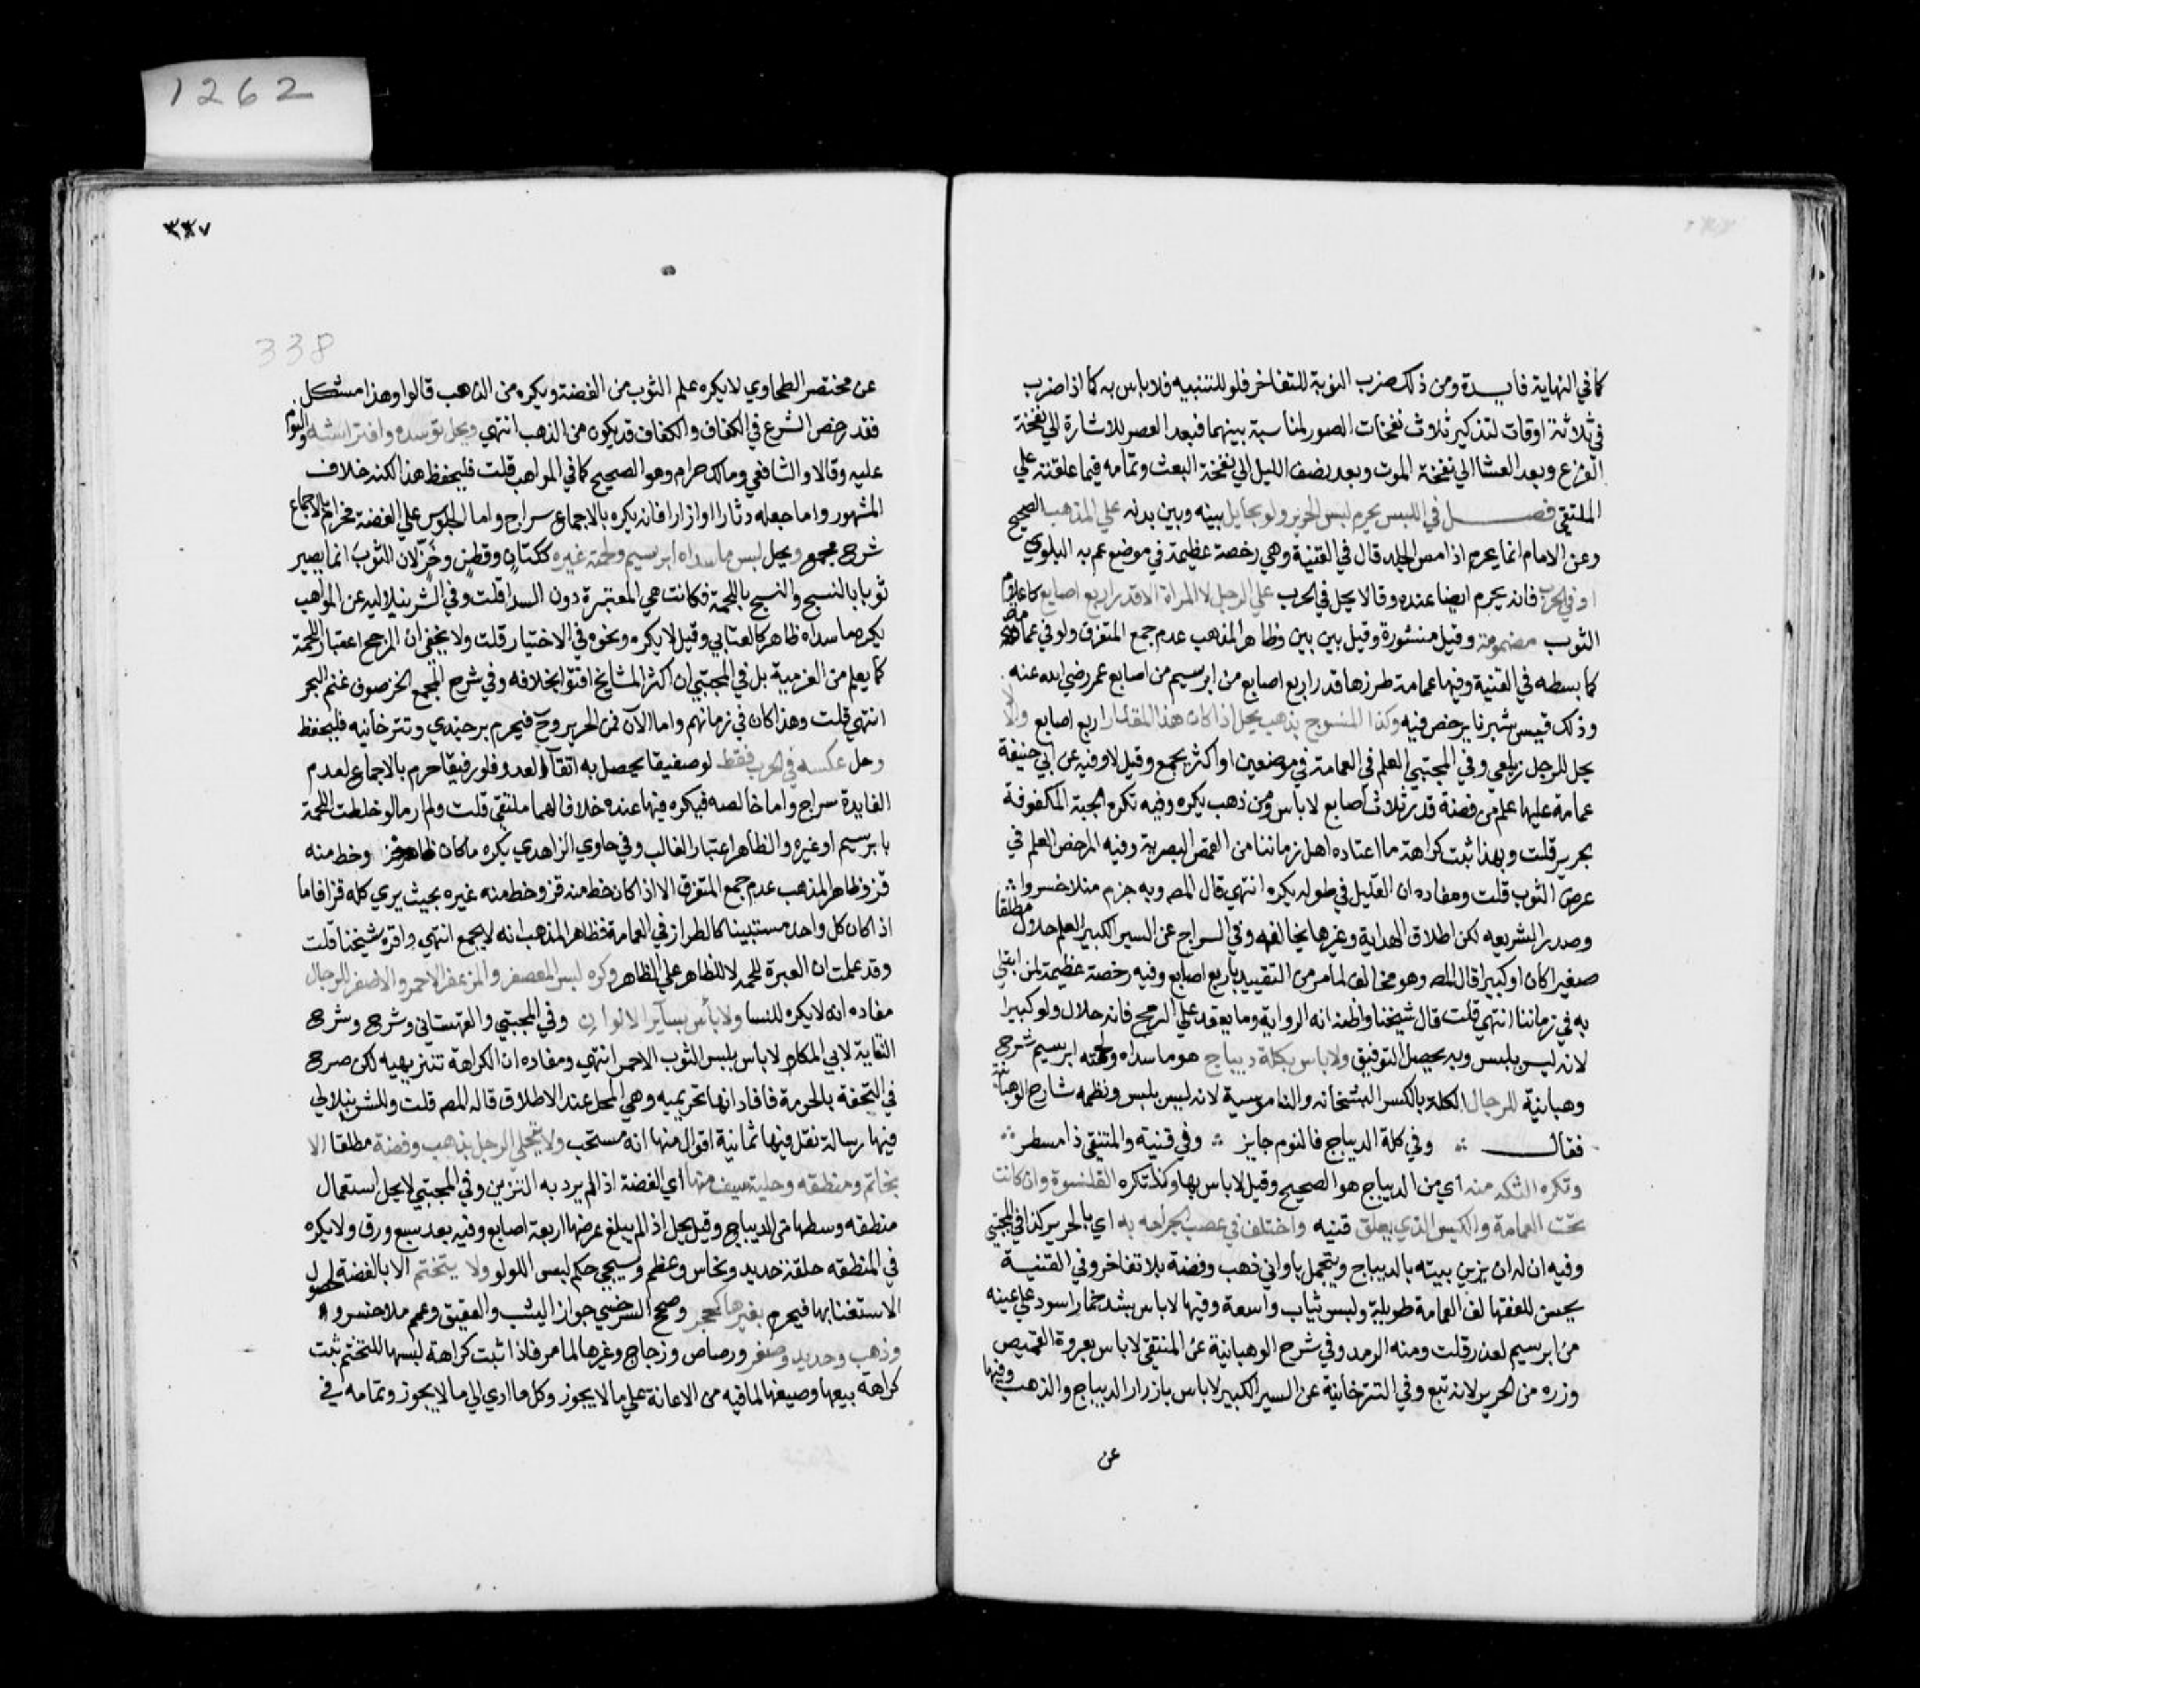 1262
كما في النهاية فايدة ومن ذلك ضرب النوبة للتفاخر فلو للتنبيه فلا باس به كما اذا ضرب
في ثلاثة اوقات لتذكير ثلاث نفخات الصور لمناسبة بينهما فبعد العصر للاشارة الي نفخة
الفزع وبعد العشا الي نفخة الموت وبعد نصف الليل الي نفخة البعث وتمامه فيما علقته علي
الملتقي فصل في اللبس يحرم لبس الحرير ولو بحايل بينه وبين بدنه علي المذهب الصحيح
وعن الامام انما يحرم اذا مس الجلد قال في القنية وهي رخصة عظيمة في موضع عم به البلوي
او في الحرب فانه يحرم ايضا عنده وقالا يحل في الحرب علي الرجل لا المراة الا قدر اربع اصابع كاعلام
الثوب مضمومة وقيل منشورة وقيل بين بين وظاهر المذهب عدم جمع المتفرق ولو في عمامة
كما بسطه في القنية وفيها عمامة طرزها قدر اربع اصابع من ابرسيم من اصابع عمر رضي الله عنه
وذلك قيس شبرنا يرخص فيه وكذا المنسوج بذهب يحل اذا كان هذا المقدار اربع اصابع والا لا
يحل للرجل زيلعي وفي المجتبي العلم في العمامة في موضعين او اكثر يجمع وقيل لا وفيه عن ابي حنيفة
عمامة عليها علم من فضة قدر ثلاث اصابع لا باس ومن ذهب يكره وفيه تكره الجبة المكفوفة
بحرير قلت وبهذا ثبت كراهة ما اعتاده اهل زماننا من القمص البصرية وفيه المرخص العلم في
عرض الثوب قلت ومفاده ان القليل في طوله يكره انتهي قال المص وبه جزم منلا خسروا
وصدر الشريعه لكن اطلاق الهداية وغيرها يخالفه وفي السراج عن السير الكبير العلم حلال مطلقا
صغيرا كان او كبيرا قال المص وهو مخالف لما مر من التقييد باربع اصابع وفيه رخصة عظيمة لمن ابتلي
به في زماننا انتهي قلت قال شيخنا واظنه انه الرواية وما يعقد علي الرمح فانه حلال ولو كبيرا
لانه ليس بلبس وبه يحصل التوفيق ولا باس بكلة ديباج هو ما سداه ولحمته ابرسيم شرح
وهبانية للرجال الكلة بالكسر البشخانه والناموسية لانه ليس بلبس ونظمه شارح الوهبانية
فقال ؞ وفي كلة الديباج فالنوم جايز ؞ وفي قنية والمنتقي ذا مسطر ؞
وتكره التكه منه اي من الديباج هو الصحيح وقيل لا باس بها وكذا تكره القلنسوة وان كانت
تحت العمامة والكيس الذي يعلق قنيه واختلف في عصب الجراحه به اي بالحرير كذا في المجتبي
وفيه ان له ان يزين بيته بالديباج ويتجمل باواني ذهب وفضة بلا تفاخر وفي القنية
يحسن للفقها لف العمامة طويلة ولبس ثياب واسعة وفيها لا باس بشد خمار اسود علي عينه
من ابرسيم لعذر قلت ومنه الرمد وفي شرح الوهبانية عن المنتقي لا باس بعروة القميص
وزره من الحرير لانه تبع وفي التترخانية عن السير الكبير لا باس بازرار الديباج والذهب وفيها
عن
٣٣٧
338
عن مختصر الطحاوي لا يكره علم الثوب من الفضة ويكره من الذهب قالوا وهذا مشكل
فقد رخص الشرع في الكفاف والكفاف قد يكون من الذهب انتهي ويحل توسده وافتراشه والنوم
عليه وقالا والشافعي ومالك حرام وهو الصحيح كما في المواهب قلت فليحفظ هذا لكنه خلاف
المشهور واما جعله دثارا او ازارا فانه يكره بالاجماع سراج واما الجلوس علي الفضة فحرام بالاجماع
شرح مجمع ويحل لبس ما سداه ابرسيم ولحمته غيره ككتان وقطن وخز لان الثوب انما يصير
ثوبا بالنسج والنسج باللحمة فكانت هي المعتبرة دون السدا قلت وفي الشرنبلاليه عن المواهب
يكره ما سداه ظاهر كالعتابي وقيل لا يكره ونحوه في الاختيار قلت ولا يخفي ان المرجح اعتبار اللحمة
كما يعلم من العزمية بل في المجتبي ان اكثر المشايخ افتوا بخلافه وفي شرح المجمع الخز صوف غنم البحر
انتهي قلت وهذا كان في زمانهم واما الآن فمن الحرير وح فيحرم برجندي وتترخانيه فليحفظ
وحل عكسه في الحرب فقط لو صفيقا يحصل به اتقآ العدو فلو رقيقا حرم بالاجماع لعدم
الفايدة سراج واما خالصه فيكره فيها عنده خلافا لهما ملتقي قلت ولم ار ما لو خلطت اللحمة
بابرسيم او غيره والظاهر اعتبار الغالب وفي حاوي الزاهدي يكره ما كان ظاهره قز وخط منه
قز وظاهر المذهب عدم جمع المتفرق الا اذا كان خط منه قز وخط منه غيره بحيث يري كله قزا فاما
اذا كان كل واحد مستبينا كالطراز في العمامة فظاهر المذهب انه لا يجمع انتهي واقره شيخنا قلت
وقد علمت ان العبرة للحمة لا للظاهر علي الظاهر وكره لبس المعصفر والمزعفر الاحمر والاصفر للرجال
مفاده انه لا يكره للنسا ولا بأس بسآير الالوان وفي المجتبي والقهستاني وشرح وشرح
النقاية لابي المكارم لا باس بلبس الثوب الاحمر انتهي ومفاده ان الكراهة تنزيهيه لكن صرح
في التحفة بالحرمة فافاد انها تحريميه وهي المحمل عند الاطلاق قاله المص قلت وللشرنبلالي
فيها رسالة نقل فيها ثمانية اقوال منها انه مستحب ولا يتحلي الرجل بذهب وفضة مطلقا الا
بخاتم ومنطقه وحلية سيف منها اي الفضة اذا لم يرد به التزين وفي المجتبي لا يحل استعمال
منطقه وسطها من الديباج وقيل يحل اذا لم يبلغ عرضها اربعة اصابع وفيه بعد سبع ورق ولا يكره
في المنطقه حلقة حديد ونحاس وعظم وسيجي حكم لبس اللولو ولا يتختم الا بالفضة لحصول
الاستغنا بها فيحرم بغيرها كحجر وصحح السرخسي جواز اليشب والعقيق وعمم ملا خسروا
وذهب وحديد وصفر ورصاص وزجاج وغيرها لما مر فاذا ثبت كراهة لبسها للتختم ثبت
كراهة بيعها وصيغها لما فيه من الاعانة علي ما لا يجوز وكل ما ادي الي ما لا يجوز وتمامه في